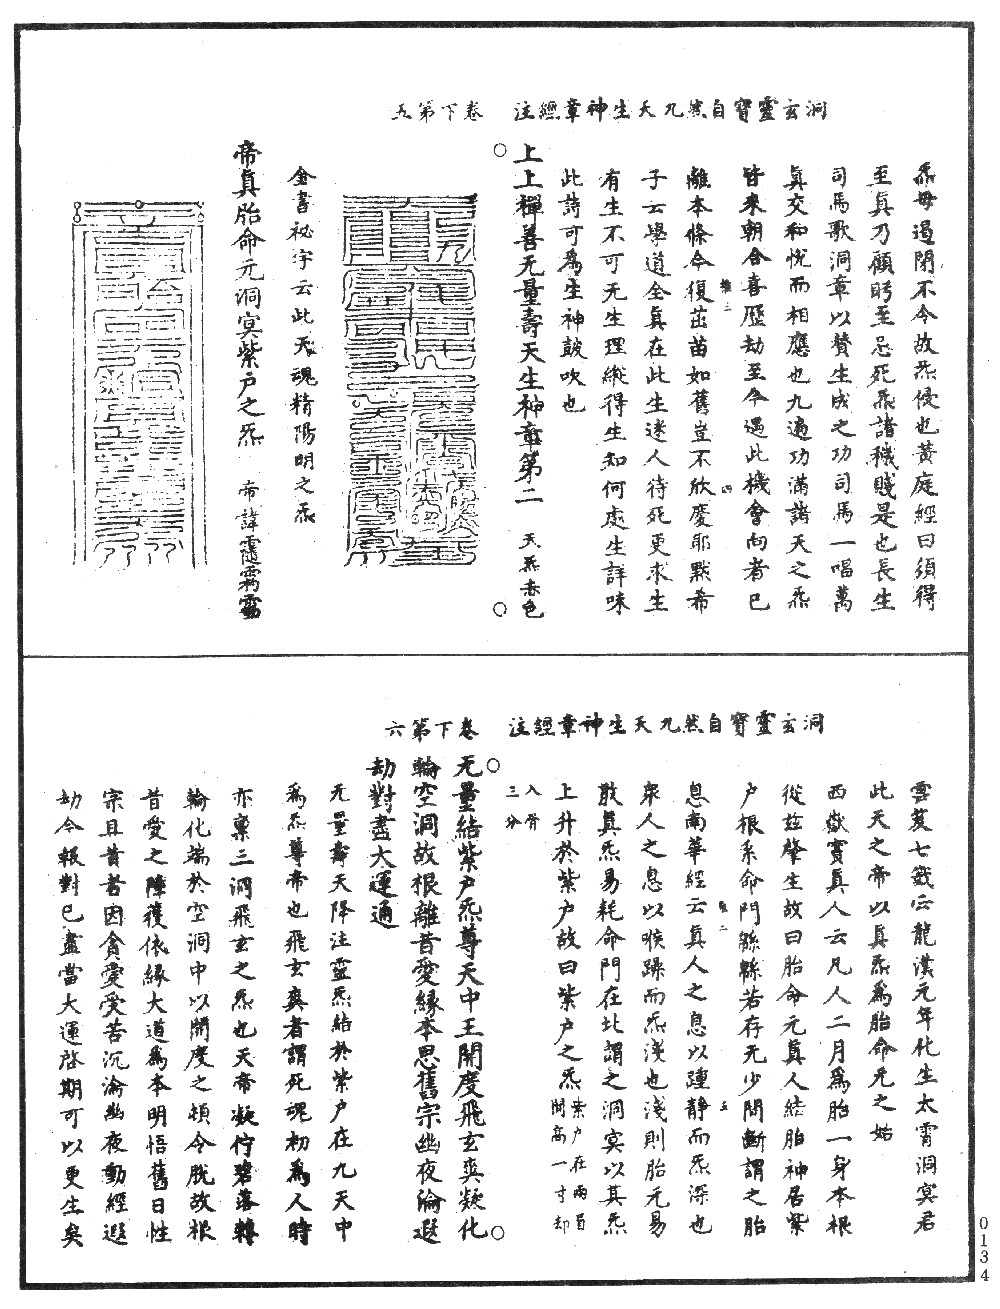 洞玄靈寶自然九天生神章經注　卷下第五
炁毋過閉不令故炁侵也黃庭經曰須得
至真乃顧盻至忌死炁諸穢賤是也長生
司馬歌洞章以贊生成之功司馬一唱萬
真交和悅而相應也九遍功滿諸天之炁
皆來朝合喜歷劫至今遇此機會向者已
離本條今復茁苗如舊豈不欣慶耶默希
子云學道全真在此生迷人待死更求生
有生不可无生理縱得生知何處生詳味
此詩可為生神鼓吹也
上上禪善无量壽天生神章第二　天炁赤色
金書祕字云此天魂精陽明之炁
帝真胎命元洞冥紫戶之炁　帝諱
洞玄靈寶自然九天生神章經注　卷下第六
雲笈七籤云龍漢元年化生太霄洞冥君
此天之帝以真炁為胎命元之始
西嶽竇真人云凡人二月為胎一身本根
從茲肇生故曰胎命元真人結胎神居紫
戶根系命門緜緜若存无少間斷謂之胎
息南華經云真人之息以踵靜而炁深也
衆人之息以喉躁而炁淺也淺則胎元易
散真炁易耗命門在北謂之洞冥以其炁
上升於紫戶故曰紫戶之炁 紫戶在兩眉間高一寸却
入骨三分
无量結紫戶炁尊天中王開度飛玄爽凝化
輪空洞故根離昔愛緣本思舊宗幽夜淪遐
劫對盡大運通
无量壽天降注靈炁結於紫戶在九天中
為炁尊帝也飛玄爽者謂死魂初為人時
亦稟三洞飛玄之炁也天帝凝佇碧落轉
輪化端於空洞中以開度之頓令脫故根
昔愛之障獲依緣大道為本明悟舊日性
宗且昔者因貪愛受苦沉淪幽夜動經遐
劫今報對已盡當大運啓期可以更生矣
0134